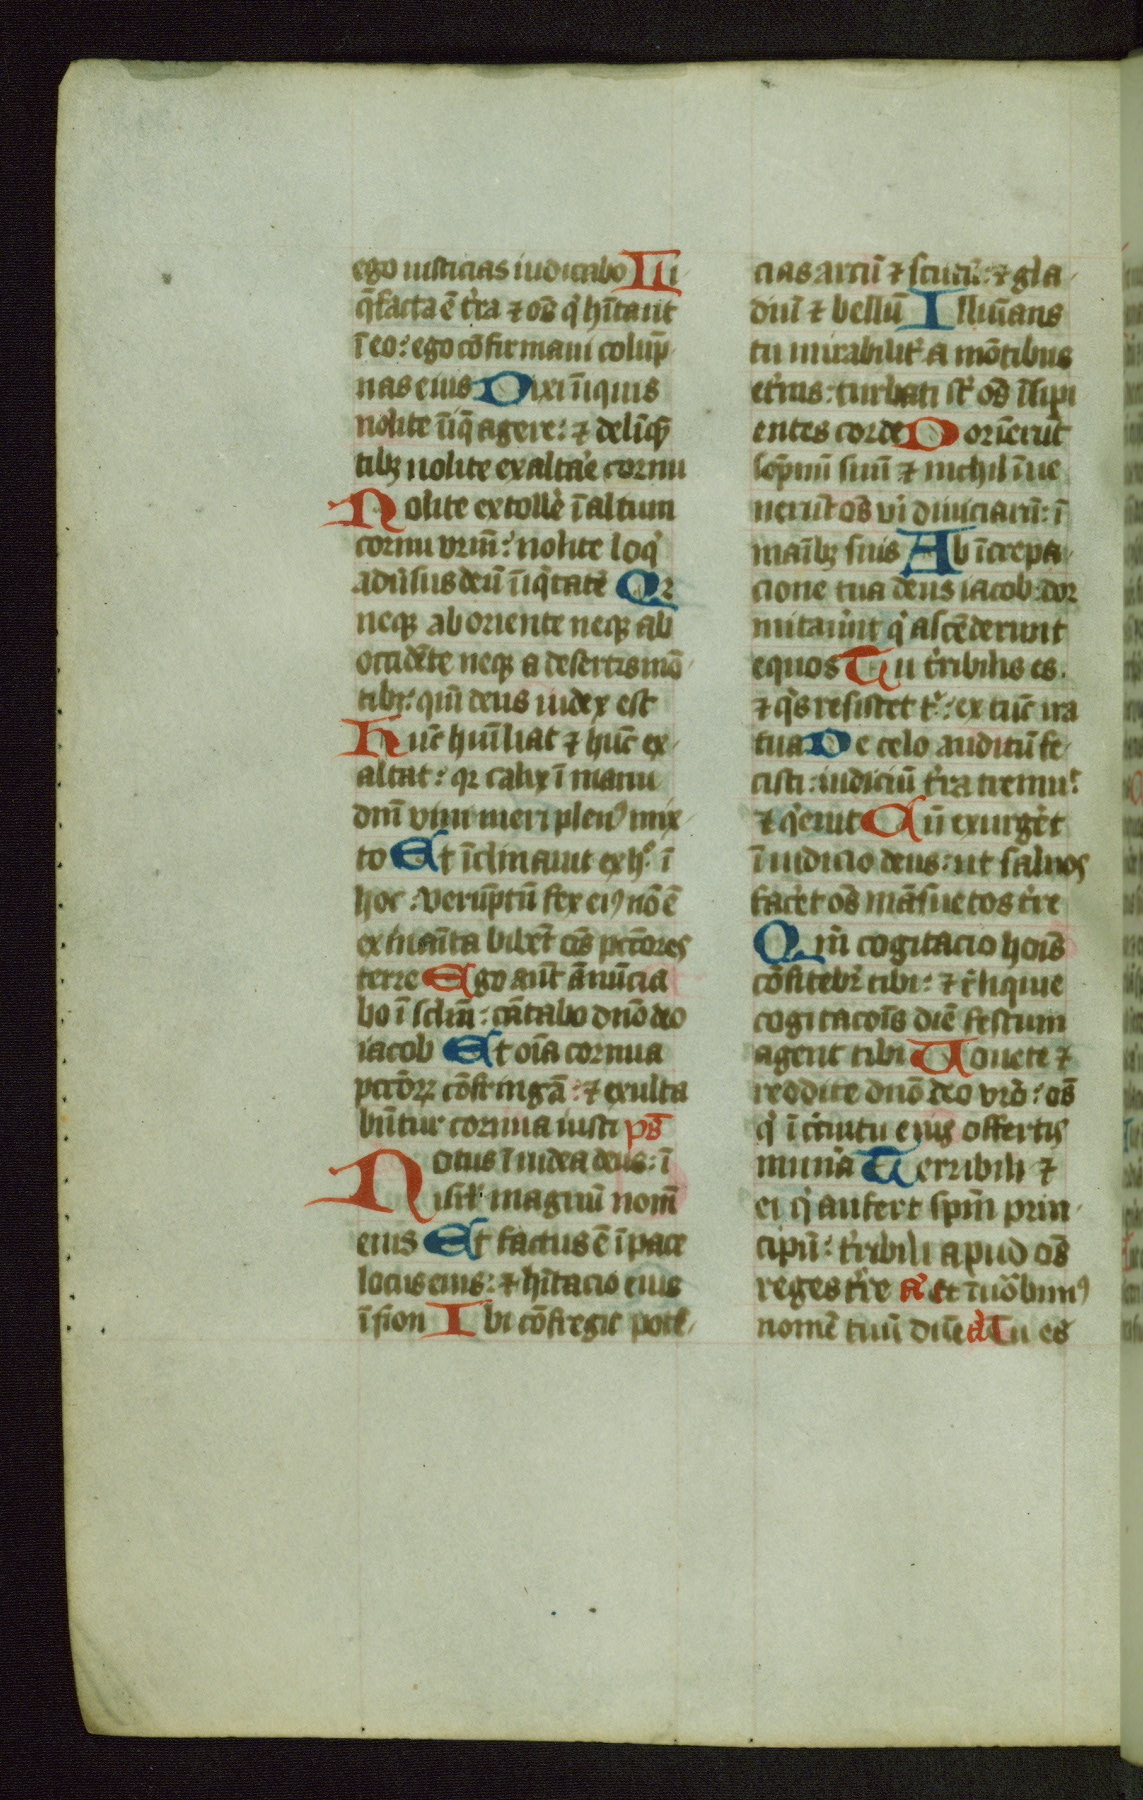 ego iusticias iudicabo Li
q̄facta ē t̓ra ⁊ oēs q̓ hītant
ī eo: ego cōfirmaui colūp
nas eius Dixi īiquis
nolite īiq̄ agere: ⁊ delīq̄
tibꝫ nolite exaltare cornu
Nolite extoll̓e ī altum
cornu vrm̄: nolite loq̓
adūsus deū īiq̓tatē Qꝛ
neqꝫ ab oriente neqꝫ ab
occidēte neqꝫ a desertis mō
tibꝫ: qm̄ deus iudex est
Hūc hūiliat ⁊ hūc ex
altat: qꝛ calix ī manu
dm̄ vini meri plenꝰ mix
to Et īclinauit ex hͦ ī
hoc: verūptū fex eiꝰ nō ē
exinaīta bibēt oēs pctōres
terre Ego aūt ānūcia
bo ī sclm̄: cātabo dnō deo
iacob Et oīa cornua
pctōꝝ cōfringā: ⁊ exulta
būtur cornua iusti ps̄
Notus ī iudea deus: ī
isrl̓ magnū nom̄
eius Et factus ē ī pace
locus eius: ⁊ hītacio eius
ī sion Ibi cōfregit pote
cias arcū ⁊ scutū: ⁊ gla
diū ⁊ bellū Illūīans
tu mirabilit̓ a mōtibus
et̓nis: turbati st̄ oēs īsipi
entes corde Dormierūt
sōpnū suū ⁊ nichil īue
nerūt oēs viri diuiciarū: ī
maībꝫ suis Ab īcrepa
cione tua deus iacob: dor
mitauīnt q̓ ascēderunt
equos Tu t̓ribilis es.
⁊ q̓s resistet t̓: ex tūc ira
tua De celo auditū fe
cisti: iudiciū t̓ra tremuͭ
⁊ q̓eruit Cū exurg̓et
ī iudicio deus: ut saluos
facēt oēs māsuetos t̓re
Qm̄ cogitacio hoīs
cōfitebꝛ tibi: ⁊ r̓liquie
cogitacōis diē festum
agent tibi Uouete ⁊
reddite dnō deo vrō: oēs
q̓ ī circuitu eius offertis
mun̓a Terribili ⁊
ei q̓ aufert spm̄ prin
cipū: t̓ribili apud oēs
reges t̓re Aͣ Et īuōbimꝰ
nomē tuū dn̄e Tu es